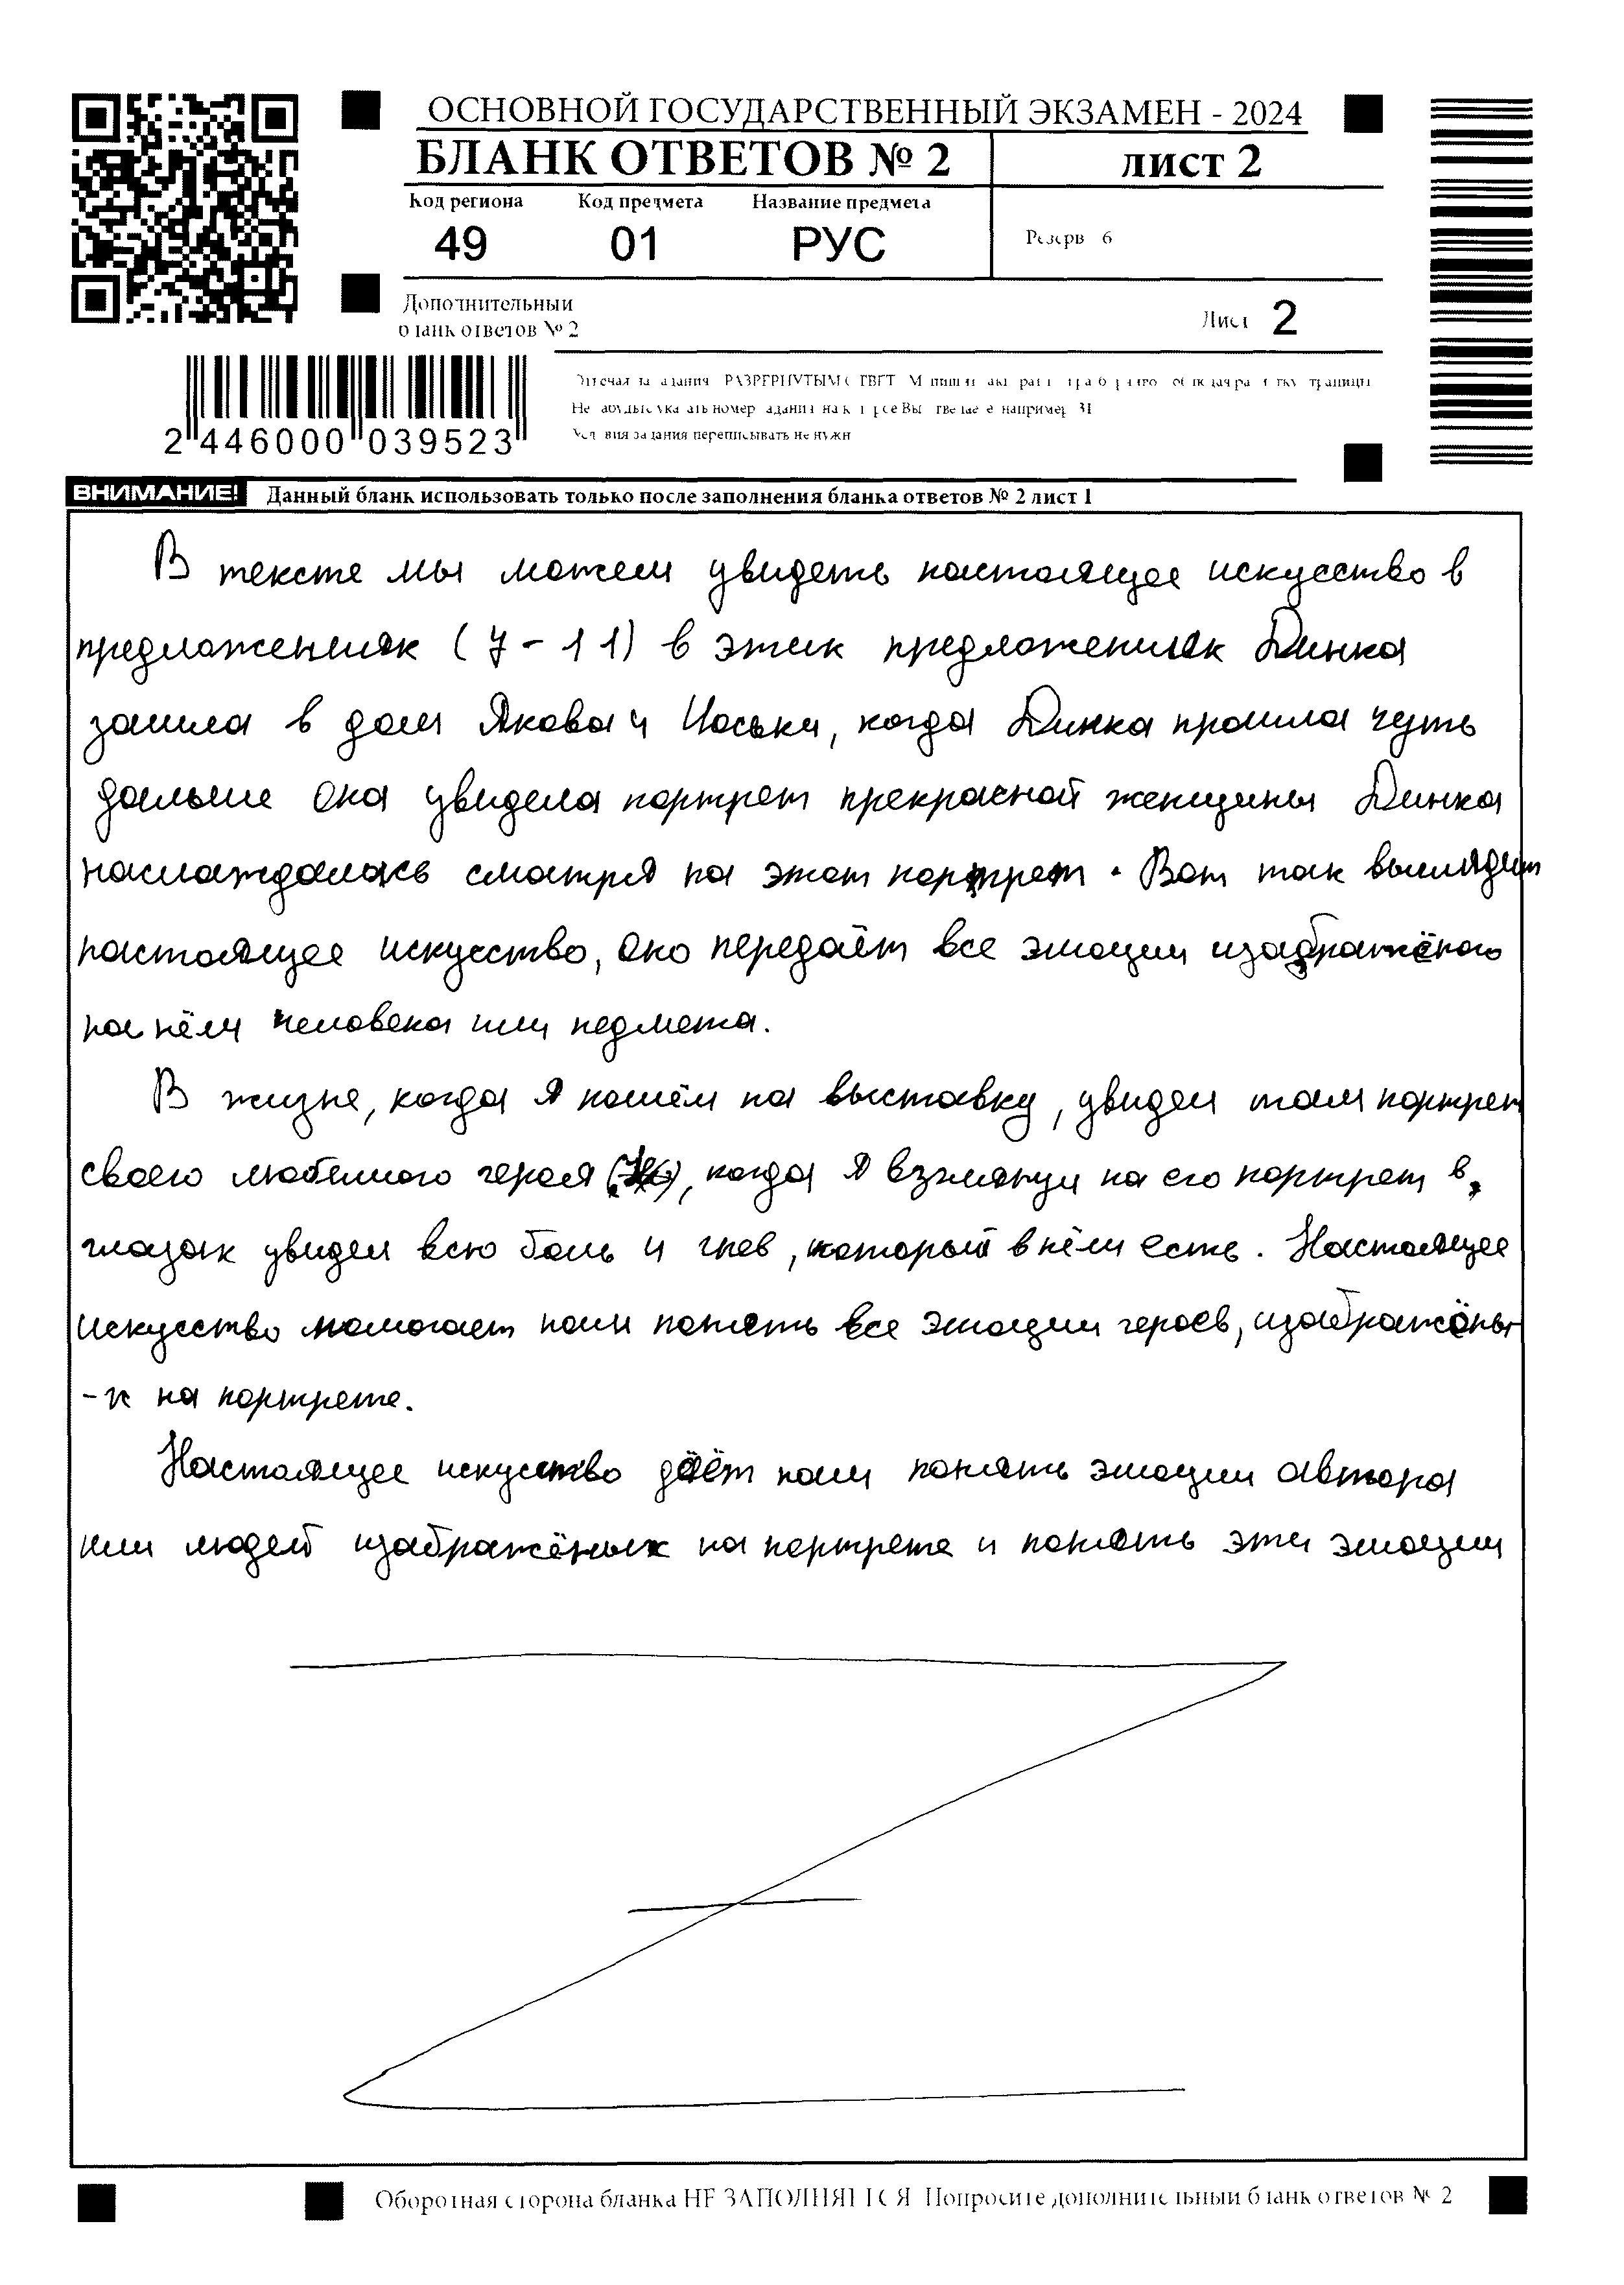 ОСНОВНОЙ ГОСУДАРСТВЕННЫЙ ЭКЗАМЕН - 2024
БЛАНК ОТВЕТОВ № 2 лист 2
Код региона Код предмета Название предмета
49 01 РУС Резерв 6
Дополнительный
бланк ответов № 2
Лист 2
2 446000 039523
Не номер задания на Вы например 31
Условия задания переписывать не нужн
ВНИМАНИЕ! Данный бланк использовать только после заполнения бланка ответов № 2 лист 1
В тексте мы можем увидеть настоящее искусство в
предложениях (7-11) в этих предложениях Динка
зашла в дом Якова и Иоськи, когда Динка прошла чуть
дальше она увидела портрет прекрасной женщины Динка
наслаждалась смотря на этот портрет. Вот так выглядит
настоящее искусство, оно передаёт все эмоции изображёного
на нём человека или педмета.
В жизне, когда я пошёл на выставку, увидел там портрет
своего любимого героя, когда я взглянул на его портрет в
глазах увидел всю боль и гнев, который в нём есть. Настоящее
искусство помогает нам понять все эмоции героев, изображёны
-х на портрете.
Настоящее искусство даёт нам понять эмоции автора
или людей изображёных на портрете и понять эти эмоции
Оборотная сторона бланка НЕ ЗАПОЛНЯЕТСЯ Попросите дополнительный бланк ответов № 2